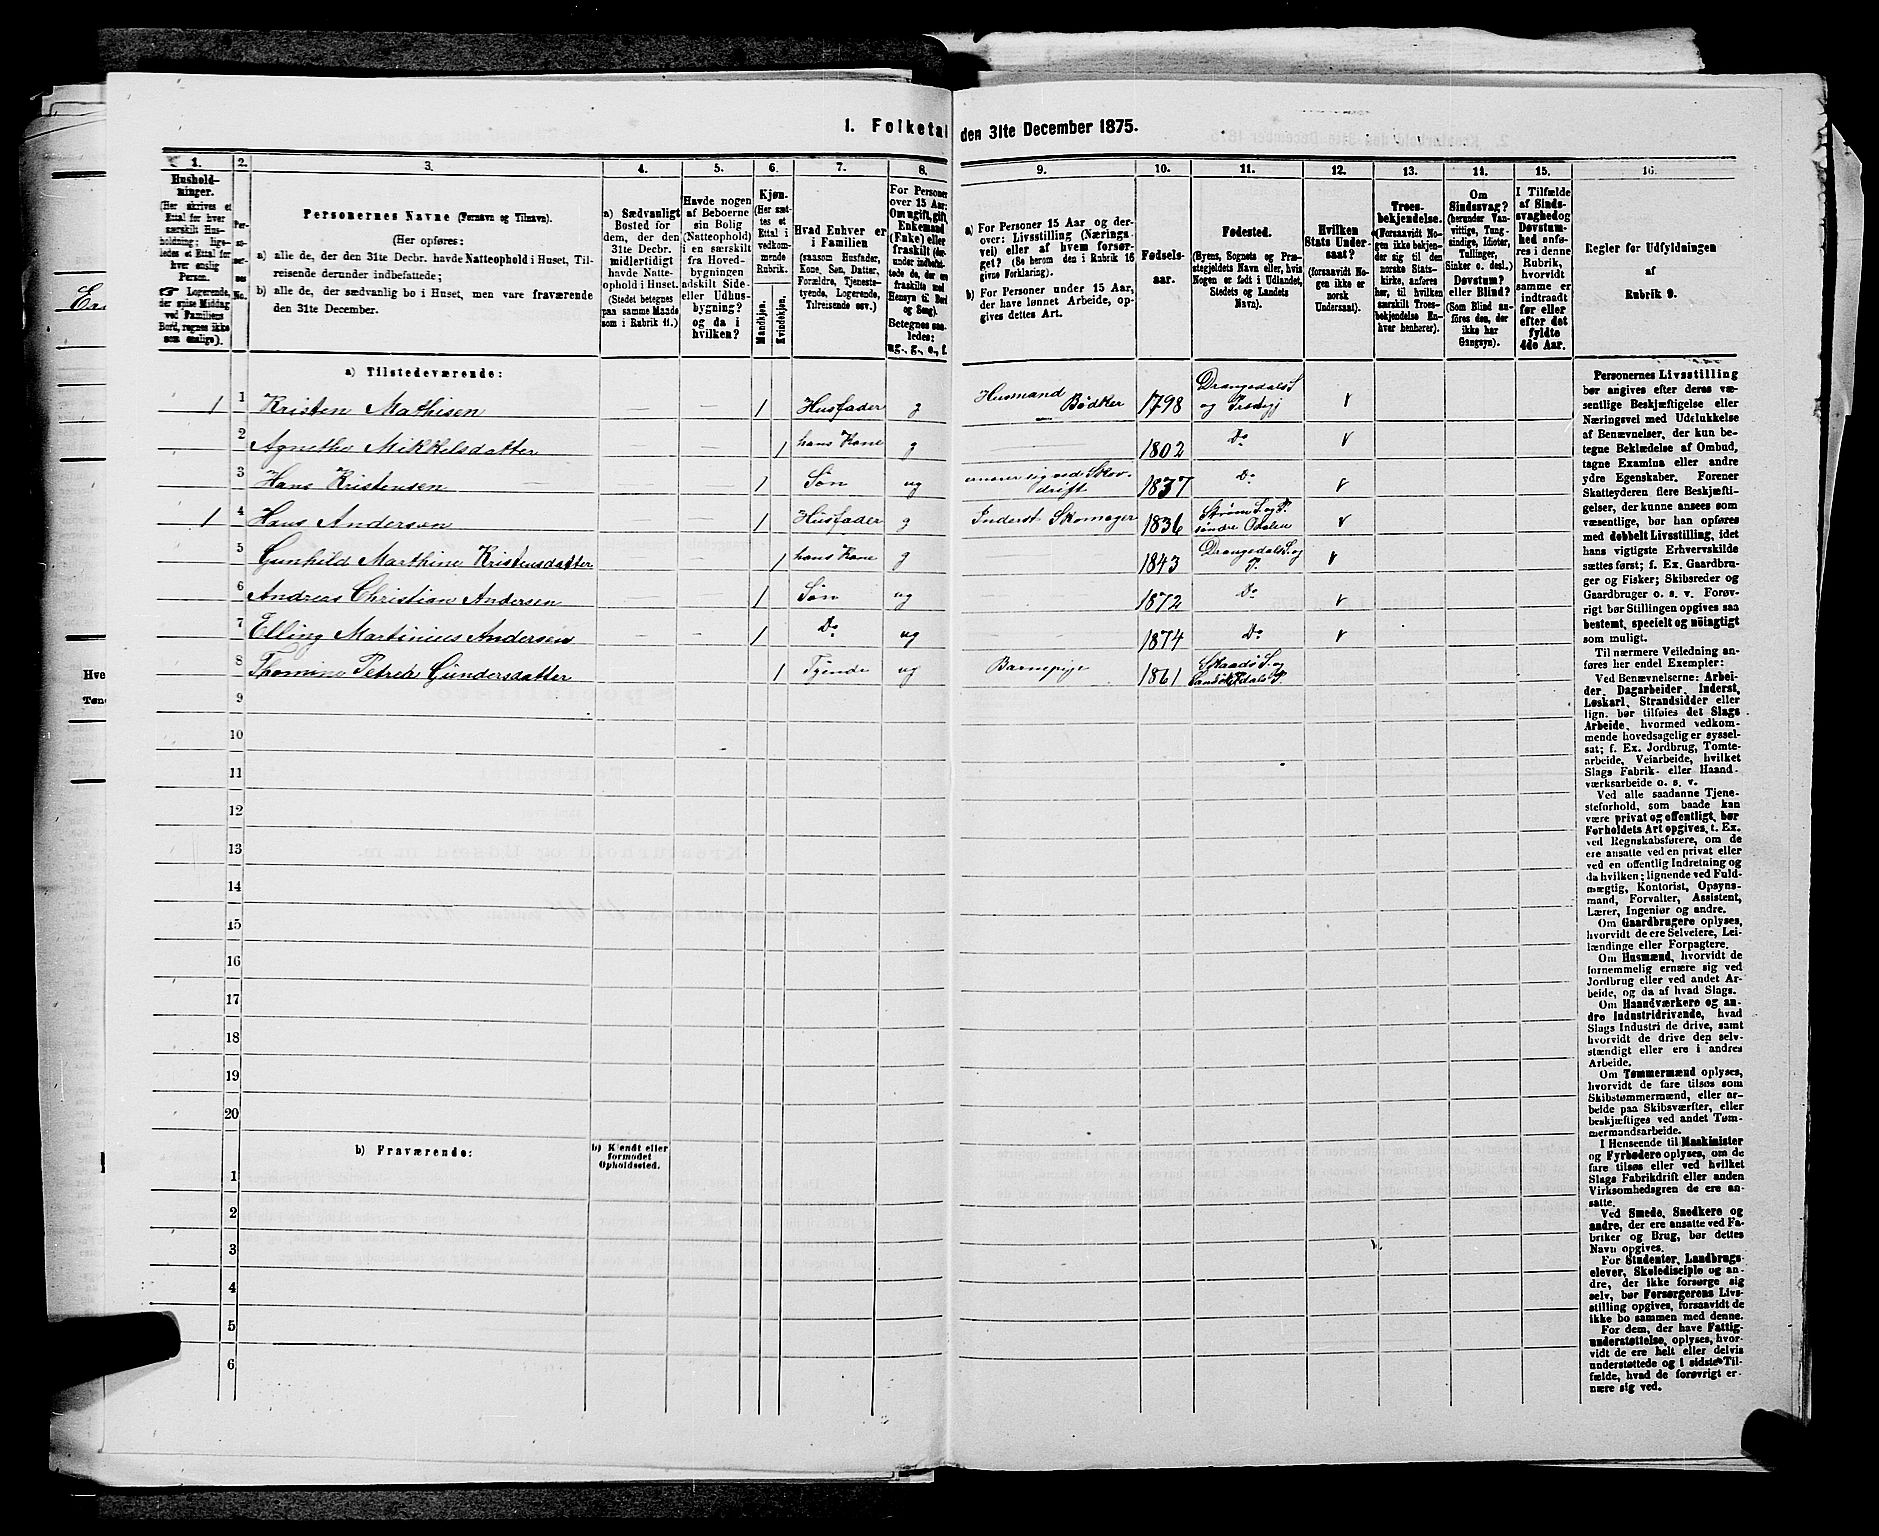 1. Folketal den 31te December 1875.
1. 2. 3. 4. 5. 6. 7. 8. 9. 10. 11. 12. 13. 14. 15. 16.
Hushold-
ninger.
(Her skrives et
Ettal for hver
særskilt Hus-
holdning; lige-
ledes et Ettal for
hver enslig
Person.
☞ Logerende,
der spise Middag
ved Familiens
Bord, regnes ikke
som enslige).
Per-
so-
ner-
nes
No.
Personernes Navne (Fornavn og Tilnavn).
(Her opføres:
a) alle de, der den 31te Decbr. havde Natteophold i Huset, Til-
reisende derunder indbefattede;
b) alle de, der sædvanlig bo i Huset, men vare fraværende
den 31te December.
a) Sædvanligt
Bosted for
dem, der den
31te Decbr.
midlertidigt
havde Natte-
ophold i Huset.
(Stedet betegnes
paa samme Maade
som i Rubrik 11.)
Havde nogen
af Beboerne
sin Bolig
(Natteophold)
i en særskilt
fra Hoved-
bygningen
adskilt Side-
eller Udhus-
bygning?
og da i
hvilken?
Kjøn.
(Her sæt-
tes et
Ettal i
vedkom-
mende
Rubrik.
Mandkjøn.
Kvindekjøn.
Hvad Enhver er
i Familien
(saasom Husfader,
Kone, Søn, Datter,
Forældre, Tjeneste-
tyende, Logerende,
Tilreisende osv.)
For Personer
over 15 Aar:
Om ugift, gift,
Enkemand
(Enke) eller
fraskilt
Betegnes saa-
ledes:
ug., g., e., f.
a) For Personer 15 Aar og der-
over: Livsstilling (Nærings-
vei) eller af hvem forsør-
get? (Se herom den i Rubrik 16
givne Forklaring).
b) For Personer under 15 Aar,
der have lønnet Arbeide, op-
gives dettes Art.
Fødsels-
aar.
Fødested.
(Byens, Sognets og Præ-
stegjeldets Navn eller, hvis
Nogen er født i Udlandet,
Stedets og Landets
Navn).
Hvilken
Stats Under-
saat?
(forsaavidt No-
gen ikke er
norsk
Undersaat).
Troes-
bekjendelse.
(Forsaavidt No-
gen ikke bekjen-
der sig til den
norske Stats-
kirke, anføres
her, til hvilken
særskilt Troes-
bekjendelse En-
hver henhører).
Om
Sindssvag?
(herunder Van-
vittige, Tung-
sindige, Idioter,
Tullinger,
Sinker o. desl.)
Døvstum?
eller Blind?
(Som Blind an-
føres den, der
ikke har
Gangsyn).
I Tilfælde
af Sinds-
svaghed og
Døvstum-
hed anfø-
res i denne
Rubrik,
hvorvidt
samme er
indtraadt
før eller
efter det
fyldte
4de Aar.
Regler for Udfyldningen
af
Rubrik 9.
a) Tilstedeværende:
1 1 Kristen Mathisen — — 1 Husfader g Husmand Bødker 1798 Drangedals S og Præstegj v
2 Agnethe Mikkelsdatter — — 1 hans Kone g 1802 Do v
3 Hans Kristensen — — 1 Søn ug ernærer sig ved Skovdrift 1837 Do v
1 4 Hans Andersen — — 1 Husfader g Inderst Skomager 1836 Strøms S. og P. søndre Odalen v
5 Gunhild Marthine Kristensdatter — — 1 hans Kone g 1843 Drangedals S. og P. v
6 Andreas Christian Andersen — — 1 Søn ug 1872 Do v
7 Elling Martinius Andersen — — 1 Do ug 1874 Do v
8 Thomine Petrea Gundersdatter 1 Tyende ug Barnepige 1861 Skaadø S. og Sandøkedals P.
9
10
11
12
13
14
15
16
17
18
19
20
b) Fraværende: b) Kjendt eller
formodet
Opholdssted.
1
2
3
4
5
6
Personernes Livsstilling
bør angives efter deres væ-
sentlige Beskjæftigelse eller
Næringsvei med Udelukkelse
af Benævnelser, der kun be-
tegne Beklædelse af Ombud,
tagne Examina eller andre
ydre Egenskaber. Forener
Skatteyderen flere Beskjæfti-
gelser, der kunne ansees som
væsentlige, bør han opføres
med dobbelt Livsstilling, idet
hans vigtigste Erhvervskilde
sættes først; f. Ex. Gaardbru-
ger og Fisker; Skibsreder og
Gaardbruger o. s. v. Forøv-
rigt bør Stillingen opgives saa
bestemt, specielt og nøiagtigt
som muligt.
Til nærmere Veiledning an-
føres her endel Exempler:
Ved Benævnelserne: Arbei-
der, Dagarbeider, Inderst,
Løskarl, Strandsidder eller
lign. bør tilføies det Slags
Arbeide, hvormed vedkom-
mende hovedsagelig er syssel-
sat; f. Ex. Jordbrug, Tomte-
arbeide, Veiarbeide, hvilket
Slags Fabrik- eller Haand-
værksarbeide o. s. v.
Ved alle saadanne Tjene-
steforhold, som baade kan
være privat og offentligt, bør
Forholdets Art opgives, t. Ex.
ved Regnskabsførere, om de
ere ansatte ved en privat eller
ved en offentlig Indretning og
da hvilken; lignende ved Fuld-
mægtig, Kontorist, Opsyns-
mand, Forvalter, Assistent,
Lærer, Ingeniør og andre.
Om Gaardbrugere oplyses,
hvorvidt de ere Selveiere, Lei-
lændinge eller Forpagtere.
Om Husmænd, hvorvidt de
fornemmelig ernære sig ved
Jordbrug eller ved andet Ar-
beide, og da af hvad Slags.
Om Haandværkere og an-
dre Industridrivende, hvad
Slags Industri de drive, samt
hvorvidt de drive den selv-
stændigt eller ere i andres
Arbeide.
Om Tømmermænd oplyses,
hvorvidt de fare tilsøs som
Skibstømmermænd, eller ar-
beide paa Skibsværfter, eller
beskjæftiges ved andet Tøm-
mermandsarbeide.
I Henseende til Maskinister
og Fyrbødere oplyses, om de
fare tilsøs eller ved hvilket
Slags Fabrikdrift eller anden
Virksomhedsgren de ere an-
satte.
Ved Smede, Snedkere og
andre, der ere ansatte ved Fa-
briker og Brug, bør dettes
Navn opgives.
For Studenter, Landbrugs-
elever, Skoledisciple og an-
dre, der ikke forsørge sig
selv, bør Forsørgerens Livs-
stilling opgives, forsaavidt de
ikke bo sammen med denne.
For dem, der have Fattig-
understøttelse, oplyses, hvor-
vidt de ere helt eller delvis
understøttede og i sidste Til-
fælde, hvad de forøvrigt er-
nære sig ved.